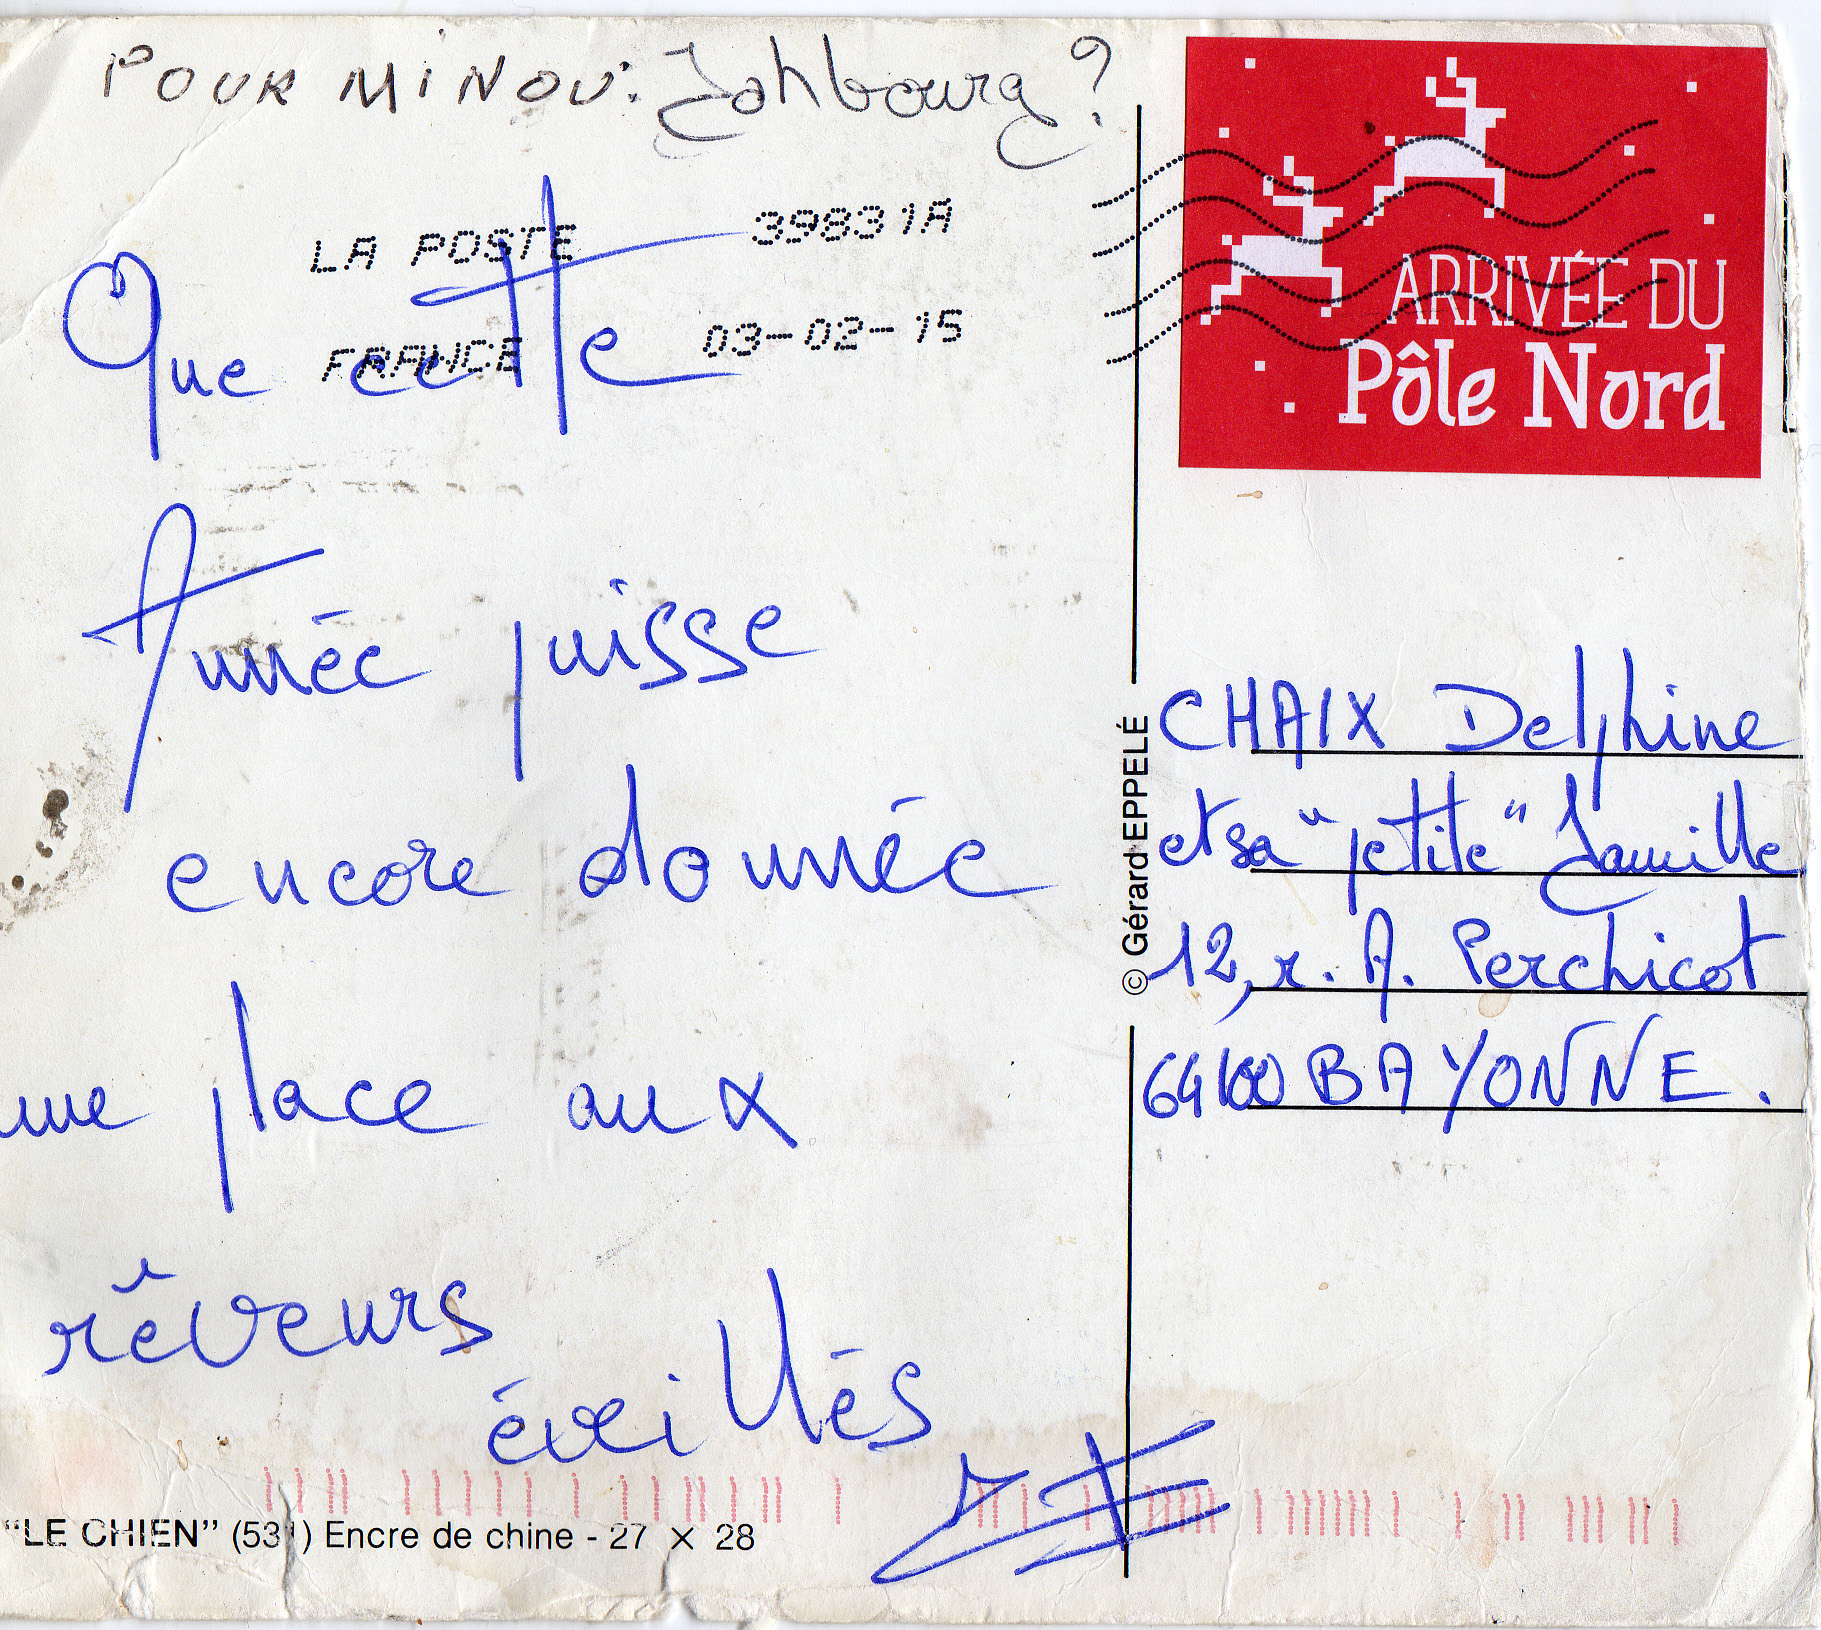 POUR MINOU: Jahbourg?
LA POSTE 39831A
FRANCE 03-02-15
Que cette
Année puisse
encore donnée
une place aux
rêveurs
éveillés
"LE CHIEN" (531) Encre de chine - 27 × 28
© Gérard EPPELÉ
ARRIVÉE DU
Pôle Nord
CHAIX Delphine
et sa "petite" famille
12, r. A. Perchicot
64100 BAYONNE.